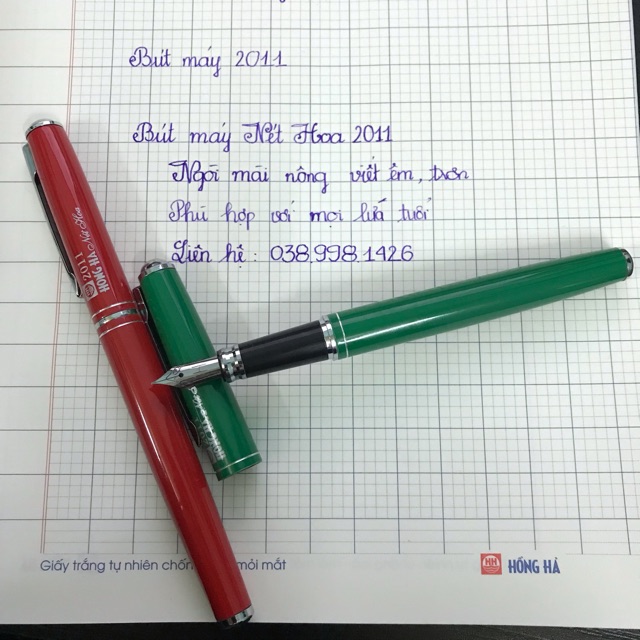 Bút máy 2011
Bút máy Nét Hoa 2011
Ngòi mài nông, viết êm, trơn
Phù hợp với mọi lứa tuổi
Liên hệ: 038.998.1426
HỒNG HÀ Nét Hoa
2011
Giấy trắng tự nhiên chốn mỏi mắt
HH HỒNG HÀ